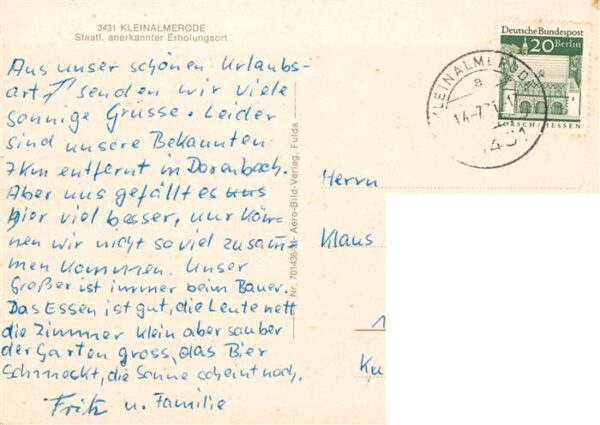 3431 KLEINALMERODE
Staatl. anerkannter Erholungsort
Aus unser schönen Urlaubs-
art senden wir viele
sonnige Grüsse. Leider
sind unsere Bekannten
7km entfernt in Dorenbach.
Aber uns gefällt es uns
hier viel besser, nur kön-
nen wir nicht so viel zusam
men kommen. Unser
Großer ist immer beim Bauer.
Das Essen ist gut, die Leute nett
die Zimmer klein aber sauber
der Garten gross, das Bier
Schmeckt, die Sonne scheint noch.
Fritz u. Familie
Aero-Bild-Verlag, Fulda
Deutsche Bundespost
20 Berlin
LORSCH/HESSEN
KLEINALMERODE
a
Herrn
Klaus
1
Ku